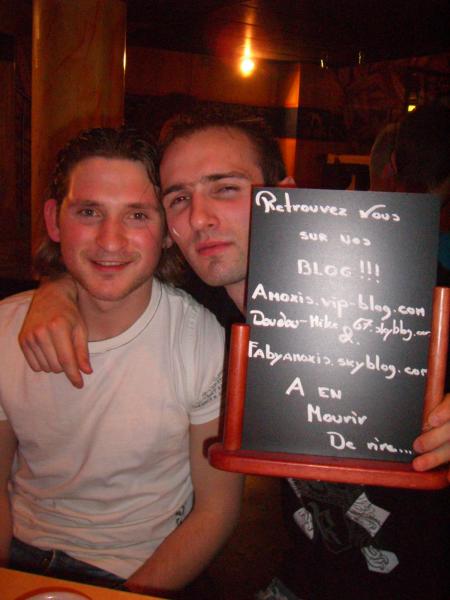 Retrouvez Nous
sur nos
BLOG !!!
Amoxis.vip-blog.com
Doudou-Mike 67.skyblog.com
&
Fabyamoxis.skyblog.com
A en
Mourir
De rire...